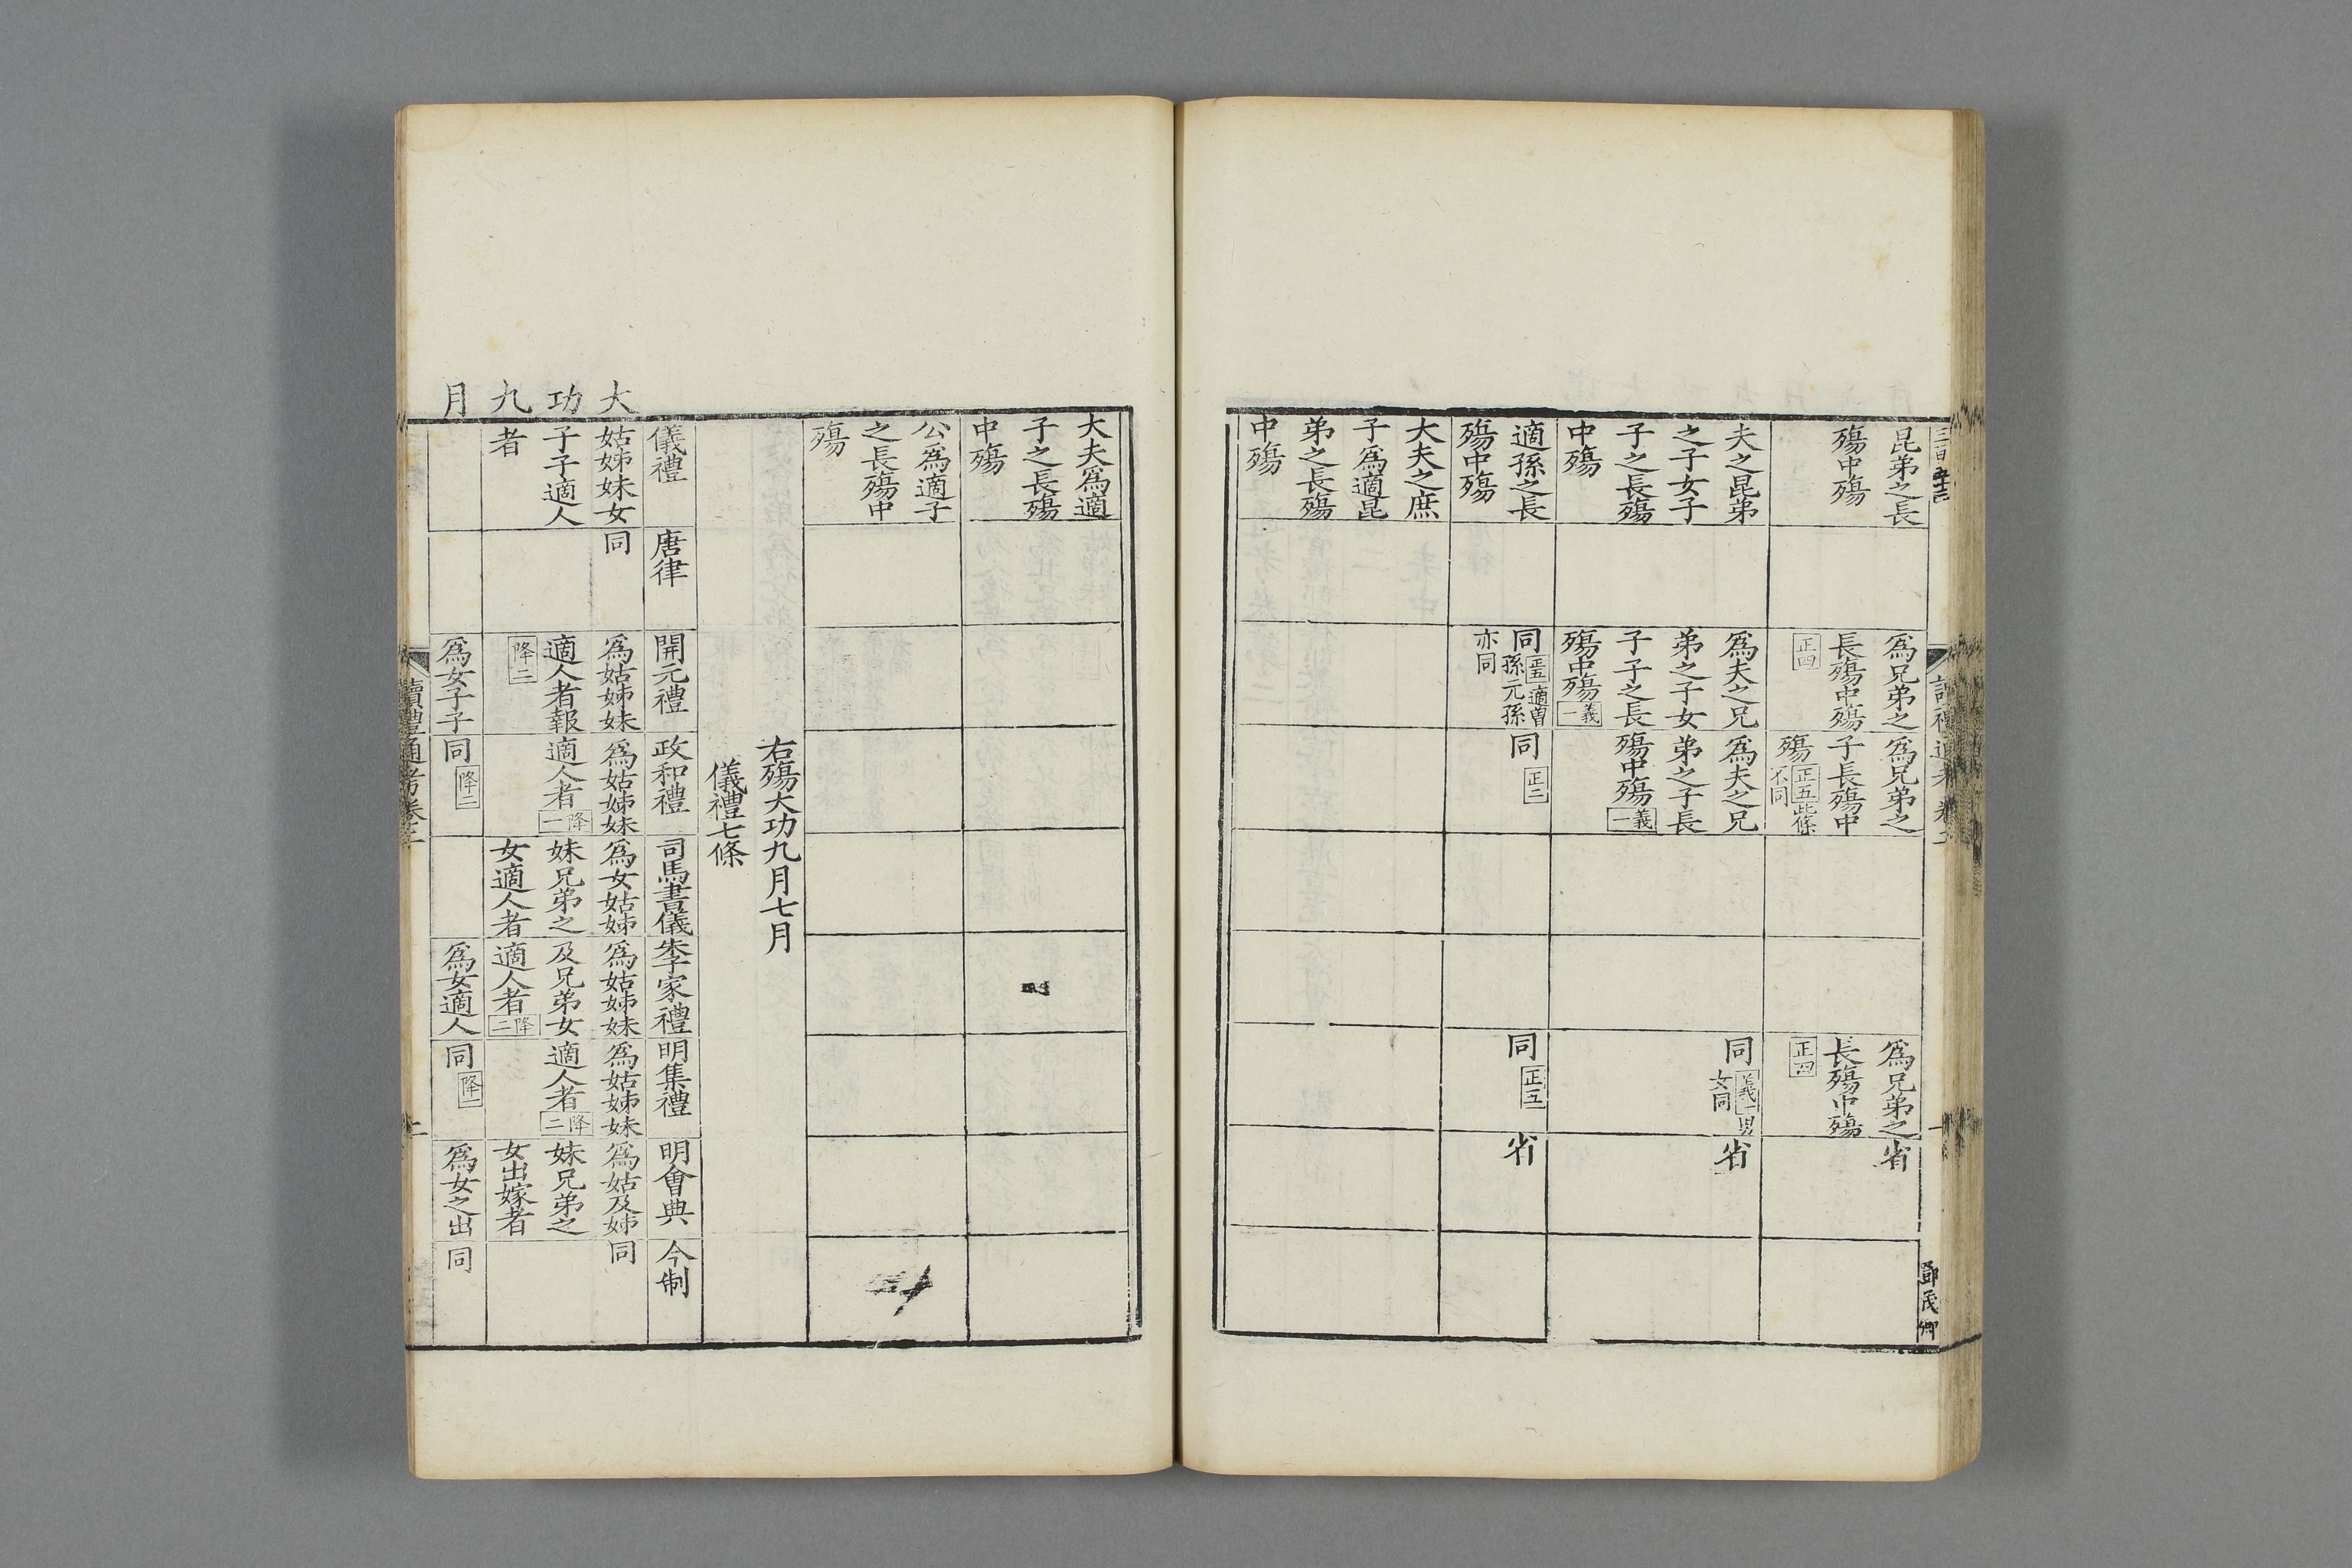 昆弟之長
殤中殤
爲兄弟之
長殤中殤
正四
爲兄弟之
子長殤中
殤正五此條
不同
爲兄弟之
長殤中殤
正四
省
夫之昆弟
之子女子
子之長殤
中殤
爲夫之兄
弟之子女
子子之長
殤中殤義一
爲夫之兄
弟之子長
殤中殤義一
同義一男
女同
省
適孫之長
殤中殤
同正五適曽
孫元孫
亦同
同正二
同正五
省
大夫之庶
子爲適昆
弟之長殤
中殤
鄧茂卿
大夫爲適
子之長殤
中殤
公爲適子
之長殤中
殤
右殤大功九月七月
儀禮七條
大功九月
儀禮
唐律
開元禮
政和禮
司馬書儀
朱子家禮
明集禮
明會典
今制
姑姊妹女
子子適人
者
同
爲姑姊妹
適人者報
降三
爲姑姊妹
適人者降一
爲女姑姊
妹兄弟之
女適人者
爲姑姊妹
及兄弟女
適人者降二
爲姑姊妹
適人者降二
爲姑及姊
妹兄弟之
女出嫁者
同
爲女子子
同降二
爲女適人
同降一
爲女之出
同
讀禮通考卷